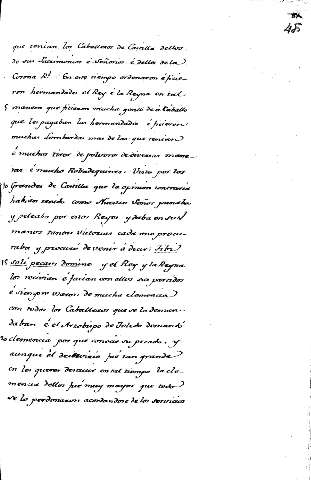 48
que tenian los Caballeros de Castilla dellos
de sus Patrimonios é Señorios é dellos de la
Corona Rl. En este tiempo ordenaron é ficie-
ron hermandades el Rey é la Reyna en tal
5 manera que ficieron mucha gente de á Caballo
que les pagaban las hermandades é ficieron
muchas Lombardas mas de las que tenian
é muchos tiros de polvora de diversas mane-
ras é muchos Ribadoquines. Visto por los
10 Grandes de Castilla que la opinion contraria
habian tenido como Nuestro Señor guiaba
y peleaba por estos Reyes y daba en sus
manos tantas victorias cada uno procu-
raba y procuró de venir á decir. Tibi
15 soli pecavi domine y el Rey y la Reyna
los recivian é facian con ellos sus partidos
é siempre usaron de mucha clemencia
con todos los Caballeros que se la deman-
daban é el Arzobispo de Toledo demandó
20 clemencia por que conoció su pecado. y
aunque el deservicio fué tan grande
en los querer destruir en tal tiempo la cle-
mencia dellos fué muy mayor que todo
se lo perdonaron acordandose de los servicios